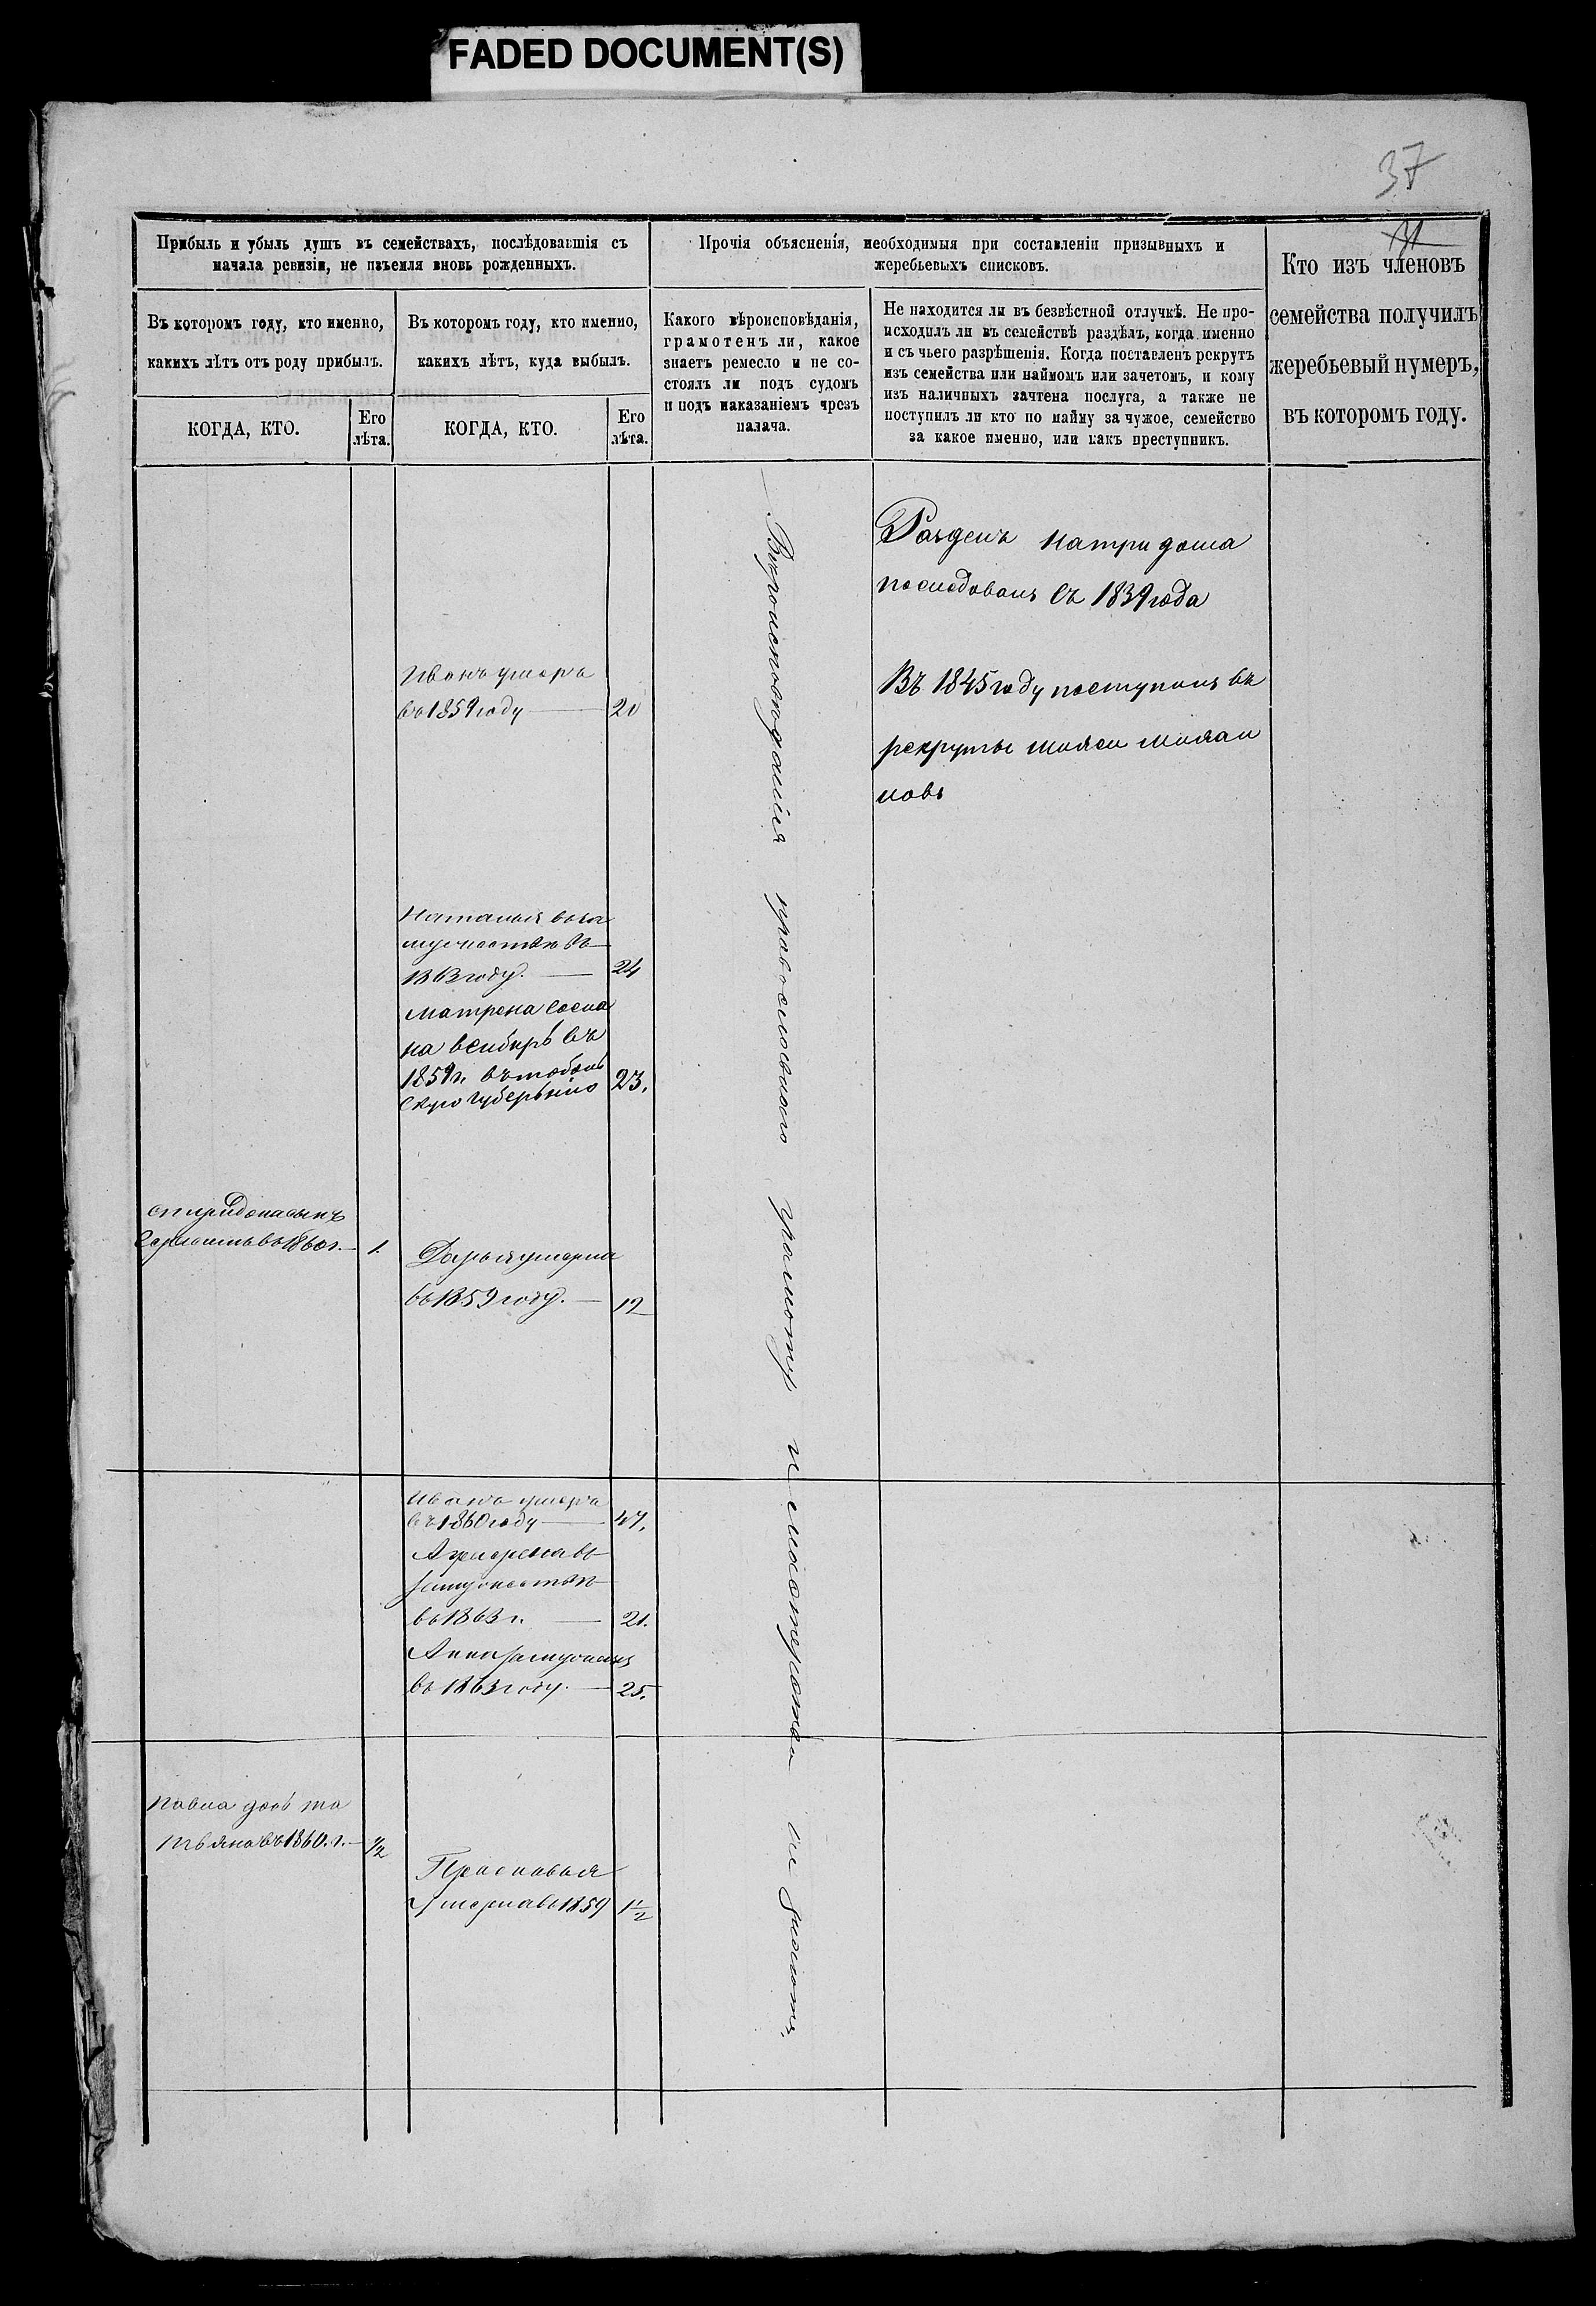 FADED DOCUMENT(S)
37
31
Прибыль и убыль душъ въ семействахъ, послѣдовавшія съ
начала ревизіи, не изъемля вновь рожденныхъ.
Въ которомъ году, кто именно,
какихъ лѣтъ отъ роду прибылъ.
КОГДА, КТО.
Его
лѣта.
Въ которомъ году, кто именно,
какихъ лѣтъ, куда выбылъ.
КОГДА, КТО.
Его
лѣта.
Прочія объясненія, необходимыя при составленіи призывныхъ и
жеребьевыхъ списковъ.
Какого вѣроисповѣданія,
грамотенъ ли, какое
знаетъ ремесло и не со-
стоялъ ли подъ судомъ
и подъ наказаніемъ чрезъ
палача.
Не находится ли въ безвѣстной отлучкѣ. Не про-
исходилъ ли въ семействѣ раздѣлъ, когда именно
и съ чьего разрѣшенія. Когда поставленъ рекрутъ
изъ семейства или наймомъ или зачетомъ, и кому
изъ наличныхъ зачтена послуга, а также не
поступилъ ли кто по найму за чужое, семейство
за какое именно, или какъ преступникъ.
Кто изъ членовъ
семейства получилъ
жеребьевый нумеръ,
въ которомъ году.
Раздељ на три дома
последовалъ съ 1839 года
Иванъ умеръ
въ 1859 году 20
Въ 1845 году поступилъ въ
рекруты
новъ
Наталья въ за
мужностъю въ
1863 году. 24
Матрена сосла
на в Сибирь въ
1859 г. въ Тоболь
скую губернію 23.
Спиридона сынъ
въ 1860 г. 1.
Дарья умерла
въ 1859 году. 12
Вѣроисповѣданія православного грамоту и мастерства не знаютъ.
Иванъ умеръ
въ 1860 году 47.
Аграфена въ
замужествѣ
въ 1863 г. 21.
Анна замужемъ
въ 1863 году. 25.
Павла дочь Та
тьяна въ 1860. г. 1/2
Прасковья
умерла въ 1859 1 1/2